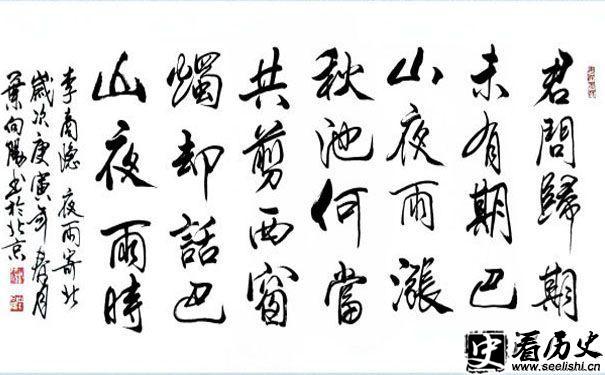 君問歸期
未有期巴
山夜雨漲
秋池何當
共剪西窗
燭却話巴
山夜雨時
李商隱 夜雨寄北
歲次庚寅年春月
葉向陽書於北京
史 看历史
www.seelishi.cn